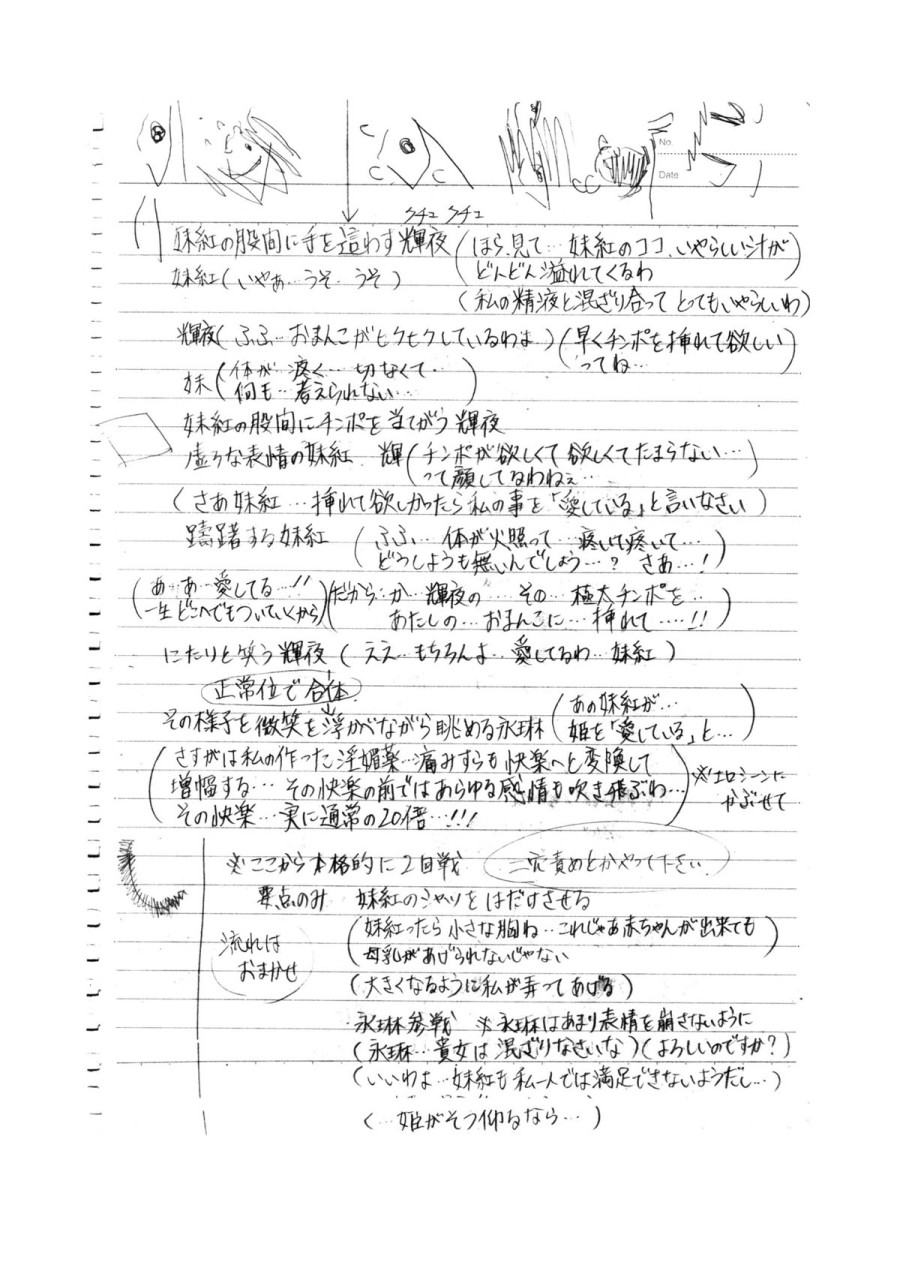 No.
Date
クチュ クチュ
妹紅の股間に手を這わす輝夜 (ほら、見て… 妹紅のココ、いやらしい汁が
どんどん溢れてくるわ)
妹紅(いやぁ…うそ…うそ)
(私の精液と混ざり合って とってもいやらしいわ)
輝夜(ふふ…おまんこがヒクヒクしているわよ…)(早くチンポを挿れて欲しい
ってね…)
妹(体が…疼く…切なくて…
何も…考えられない…)
妹紅の股間にチンポを当てがう輝夜
虚ろな表情の妹紅 輝(チンポが欲しくて欲しくてたまらない…
って顔してるわねぇ…)
(さあ妹紅…挿れて欲しかったら私の事を「愛している」と言いなさい)
躊躇する妹紅 (ふふ…体が火照って…疼いて疼いて…
どうしようも無いんでしょう…? さあ…!)
(あ…あ…愛してる…!!
一生どこへでもついていくから)
(だから…か…輝夜の…その…極太チンポを…
あたしの…おまんこに…挿れて……!!)
にたりと笑う輝夜 (ええ…もちろんよ…愛してるわ…妹紅)
正常位で合体
その様子を微笑を浮かべながら眺める永琳 (あの妹紅が…
姫を「愛している」と…)
(さすがは私の作った淫媚薬…痛みすらも快楽へと変換して
増幅する…その快楽の前ではあらゆる感情も吹き飛ぶわ…
その快楽…実に通常の20倍…!!!)
※エロシーンに
かぶせて
※ここから本格的に2回戦 二穴責めとかやって下さい
要点のみ 妹紅のシャツをはだけさせる
流れは
おまかせ
(妹紅ったら小さな胸ね…これじゃあ赤ちゃんが出来ても
母乳があげられないじゃない)
(大きくなるように私が弄ってあげる)
永琳参戦 ※永琳はあまり表情を崩さないように
(永琳…貴女は混ざりなさいな)(よろしいのですか?)
(いいわよ…妹紅も私一人では満足できないようだし…)
(…姫がそう仰るなら…)